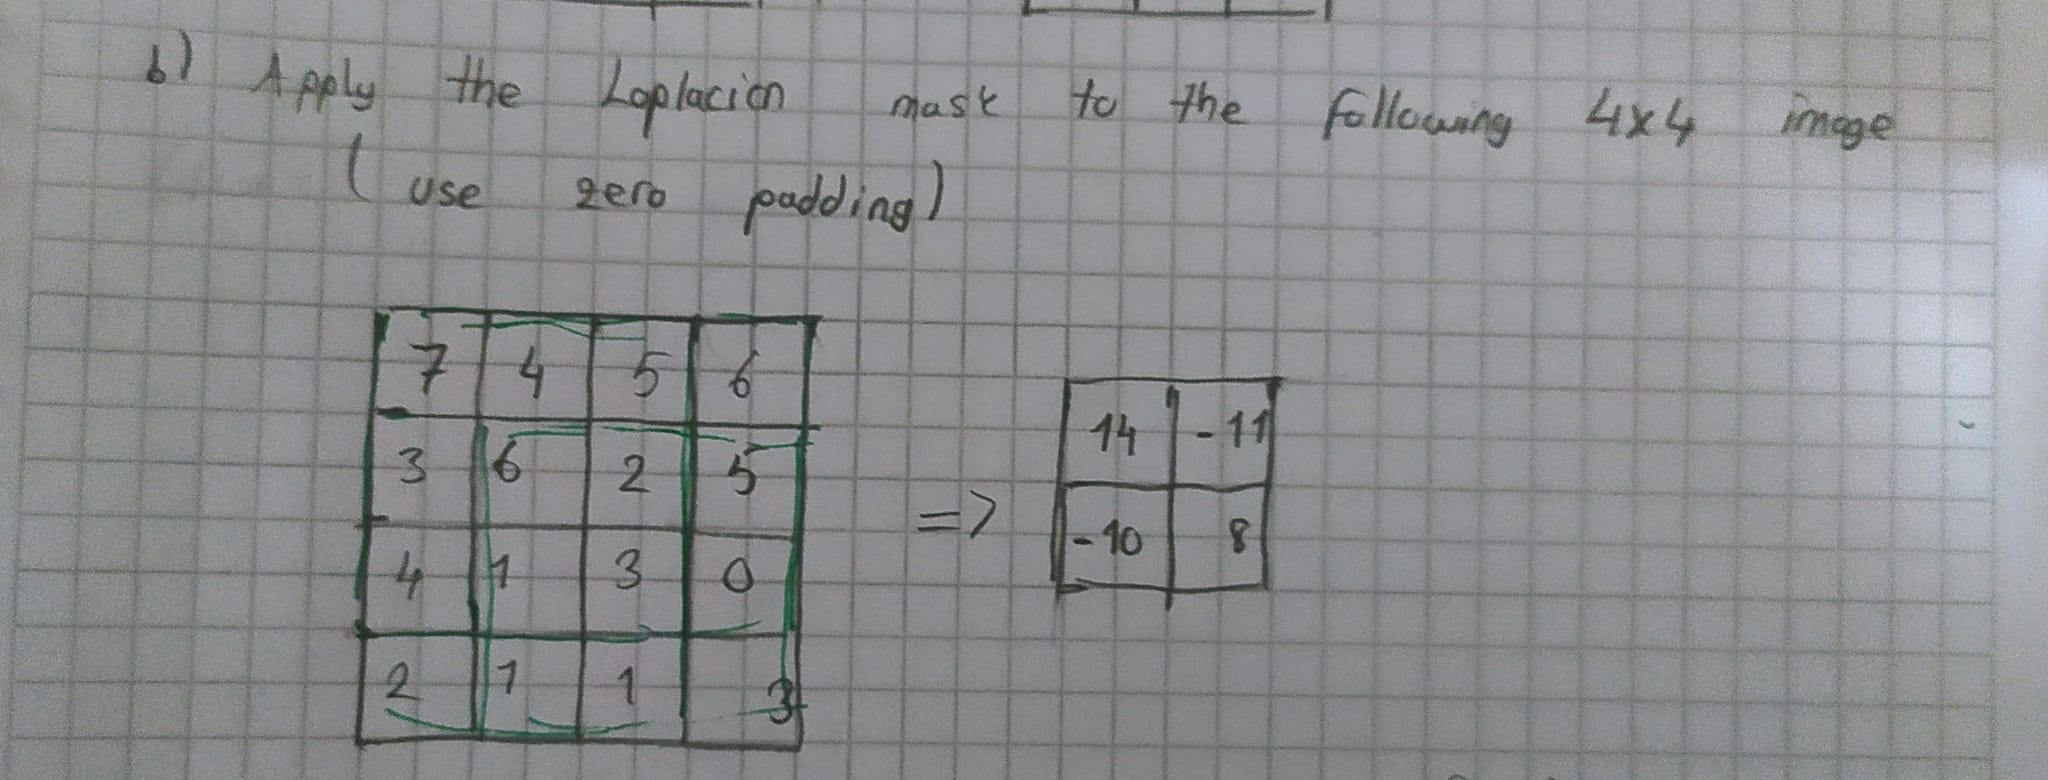 b) Apply the Laplacian mask to the following 4x4 image
(use zero padding)
7 4 5 6
3 6 2 5
4 1 3 0
2 1 1 3
=>
14 -11
-10 8